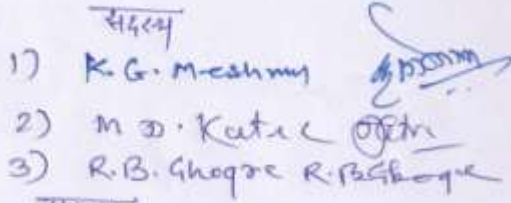 सदस्य
1) K. G. Meshram
2) M D. Katre
3) R. B. Ghogre R. B. Ghogre